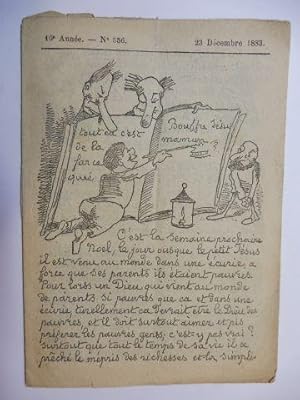 16e Année. — No 836. 23 Décembre 1883.
tout ça c'est
de la
farce
quoé
Bouffre
maman
C'est la semaine prochaine
Noël, le jour ousque le petit Jésus
il est venu au monde dans une écurie, a
force que ses parents ils étaient pauvres.
Pour lorss un Dieu qui vient au monde
de parents si pauvres que ça et dans une
écurie, turellement ça devrait être le Dieu des
pauvres, et il doit surtout aimer, et pis
préférer les pauvres gens, c'est-y pas vrai ?
surtout que tout le temps de sa vie il a
prêché le mépris des richesses et la simpli-